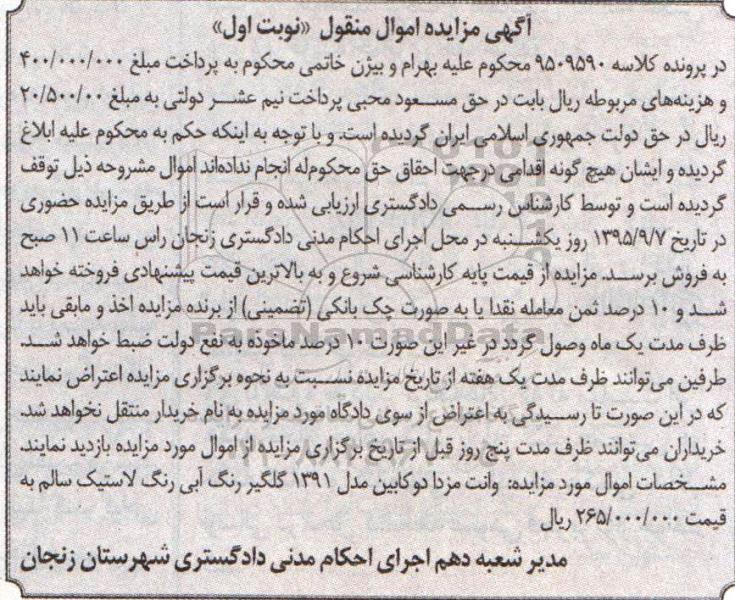 آگهی مزایده اموال منقول «نوبت اول»
در پرونده کلاسه ۹۵۰۹۵۹۰ محکوم علیه بهرام و بیژن خاتمی محکوم به پرداخت مبلغ ۴۰۰/۰۰۰/۰۰۰
و هزینه‌های مربوطه ریال بابت در حق مسعود محبی پرداخت نیم عشر دولتی به مبلغ ۲۰/۵۰۰/۰۰
ریال در حق دولت جمهوری اسلامی ایران گردیده است. و با توجه به اینکه حکم به محکوم علیه ابلاغ
گردیده و ایشان هیچ گونه اقدامی درجهت احقاق حق محکوم‌له انجام نداده‌اند اموال مشروحه ذیل توقف
گردیده است و توسط کارشناس رسمی دادگستری ارزیابی شده و قرار است از طریق مزایده حضوری
در تاریخ ۱۳۹۵/۹/۷ روز یکشنبه در محل اجرای احکام مدنی دادگستری زنجان راس ساعت ۱۱ صبح
به فروش برسد. مزایده از قیمت پایه کارشناسی شروع و به بالاترین قیمت پیشنهادی فروخته خواهد
شد و ۱۰ درصد ثمن معامله نقدا یا به صورت چک بانکی (تضمینی) از برنده مزایده اخذ و مابقی باید
ظرف مدت یک ماه وصول گردد در غیر این صورت ۱۰ درصد ماخوذه به نفع دولت ضبط خواهد شد.
طرفین می‌توانند ظرف مدت یک هفته از تاریخ مزایده نسبت به نحوه برگزاری مزایده اعتراض نمایند
که در این صورت تا رسیدگی به اعتراض از سوی دادگاه مورد مزایده به نام خریدار منتقل نخواهد شد.
خریداران می‌توانند ظرف مدت پنج روز قبل از تاریخ برگزاری مزایده از اموال مورد مزایده بازدید نمایند.
مشخصات اموال مورد مزایده: وانت مزدا دوکابین مدل ۱۳۹۱ گلگیر رنگ آبی رنگ لاستیک سالم به
قیمت ۲۶۵/۰۰۰/۰۰۰ ریال
مدیر شعبه دهم اجرای احکام مدنی دادگستری شهرستان زنجان
ParsNamadData